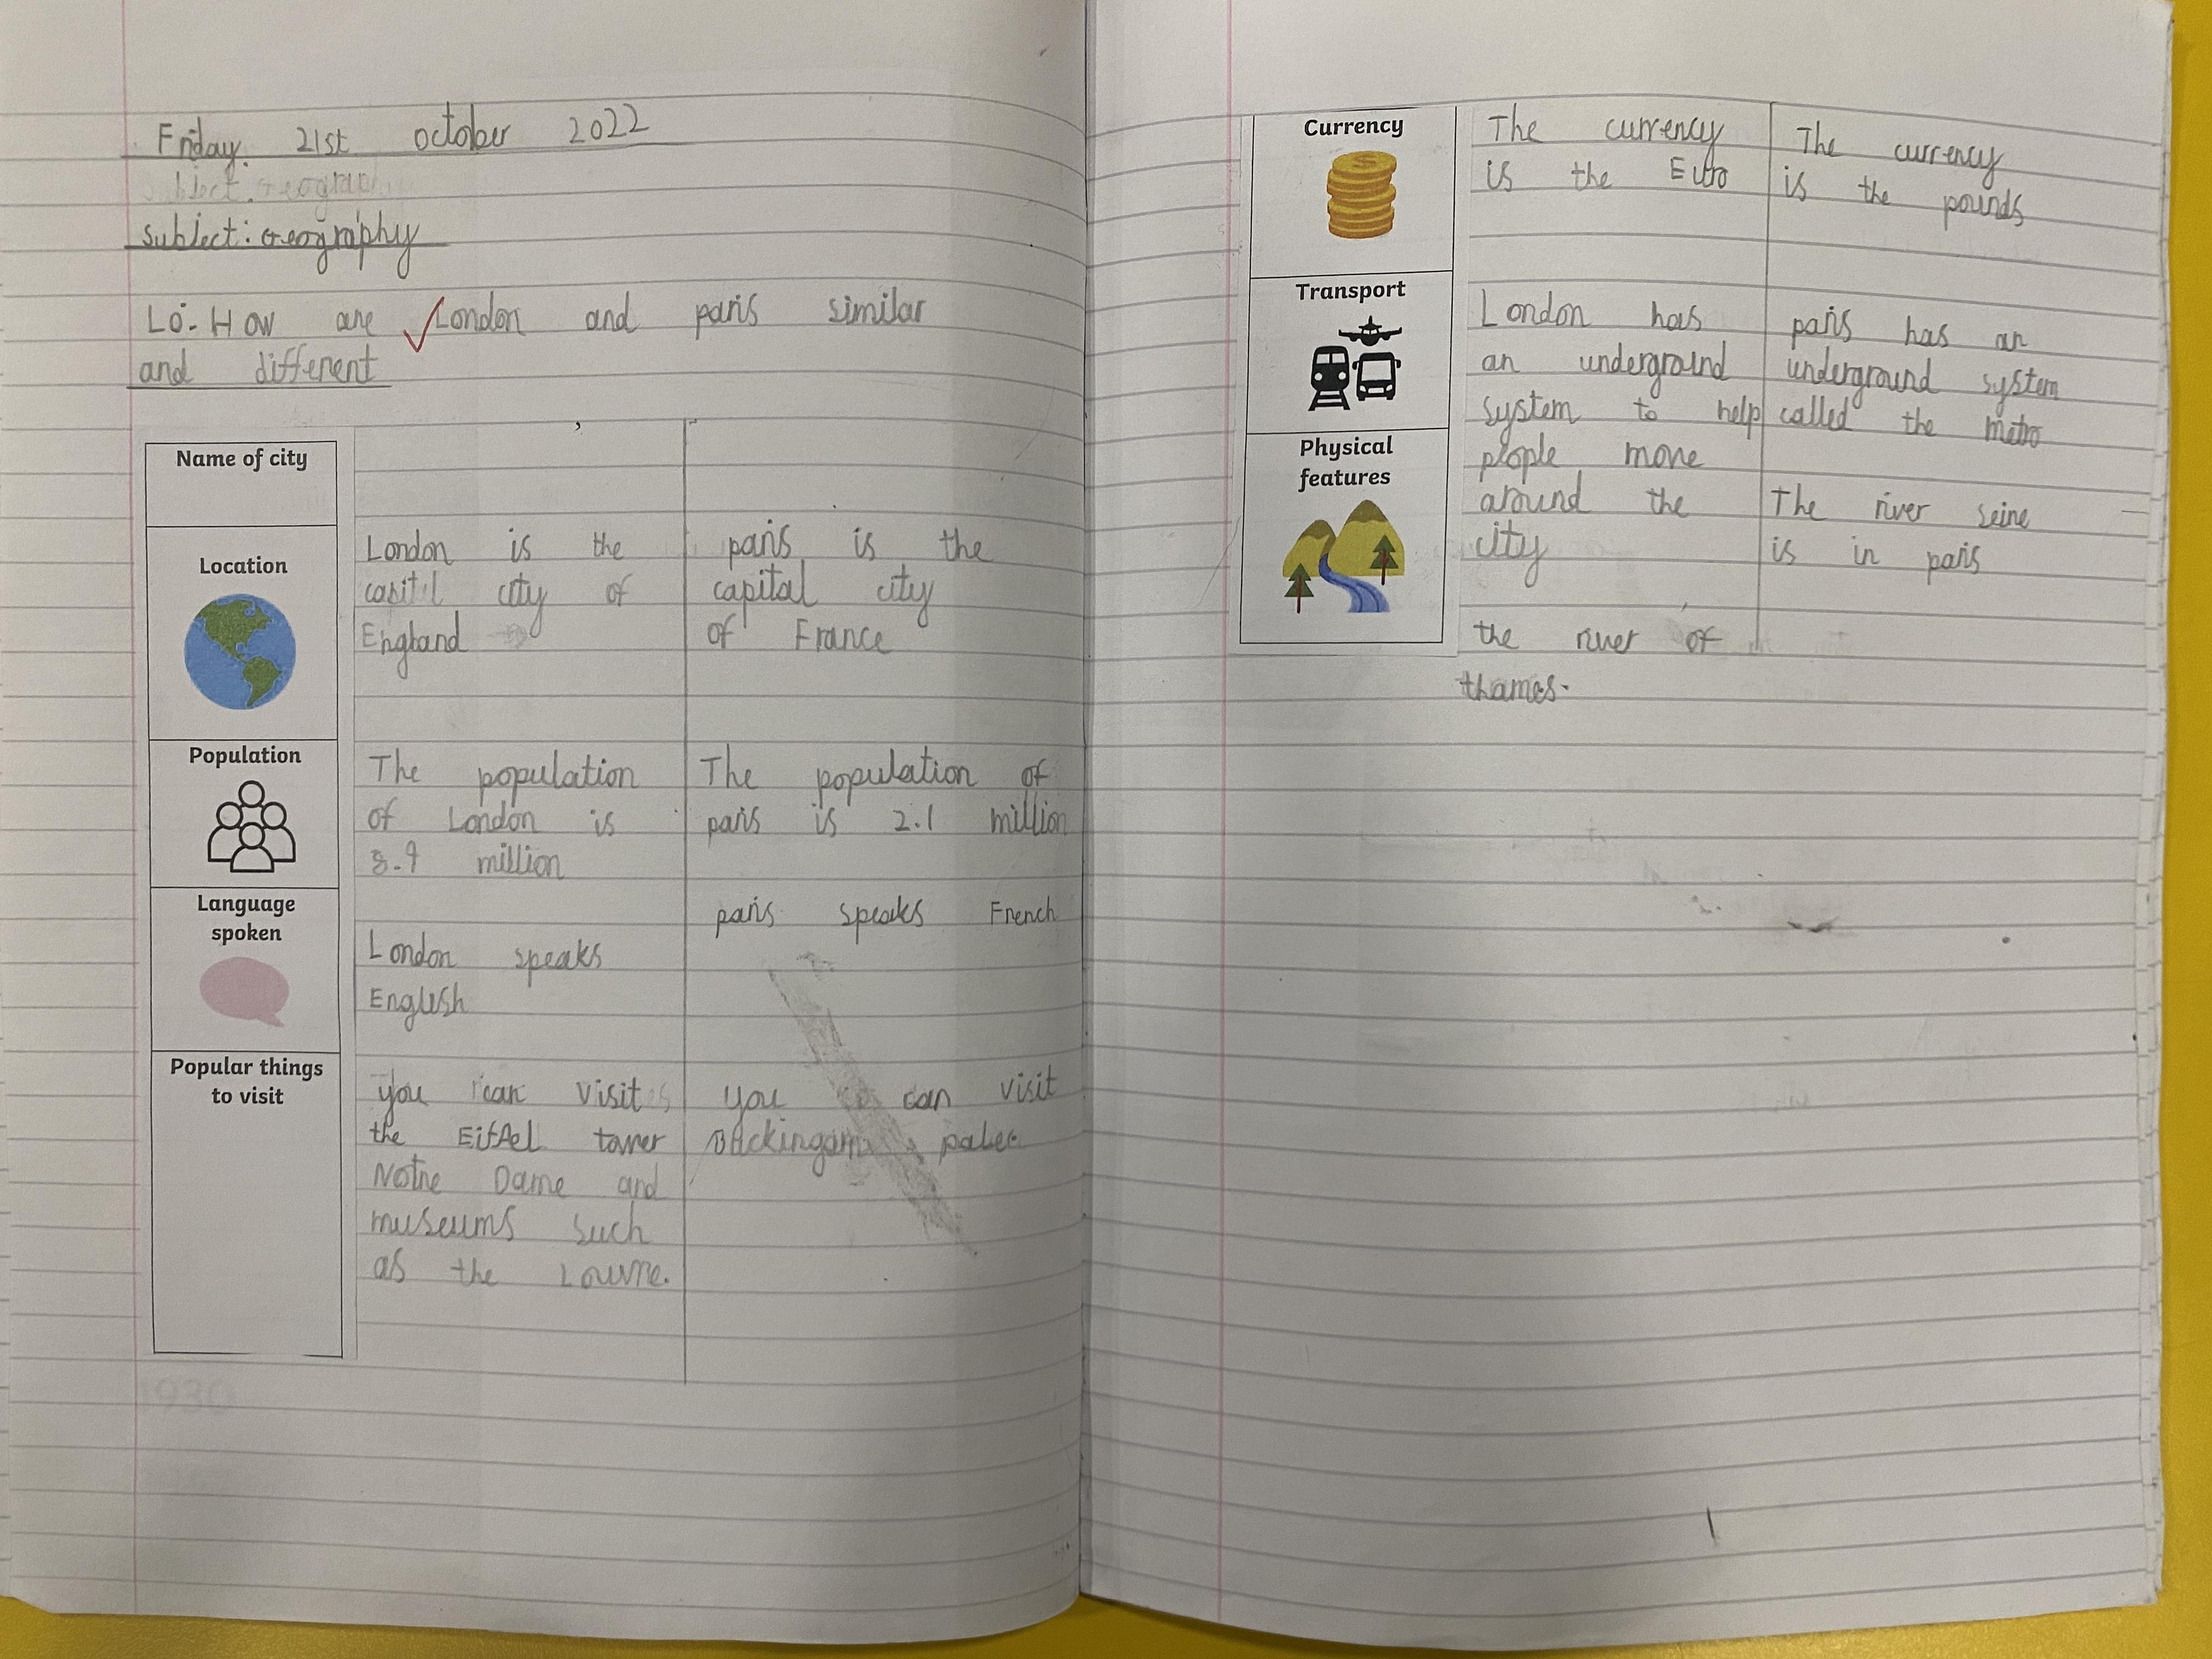 Friday. 21st october 2022
subject: Geography
subject: Geography
Lo:- How are London and paris similar
and different
Name of city
Location
London is the
capitil city of
England
paris is the
capital city
of France
Population
The population
of London is
8.9 million
The population of
paris is 2.1 million
Language
spoken
London speaks
English
paris speaks French
Popular things
to visit
you can visit
the Eiffel tower
Notre Dame and
museums such
as the Louvre.
you can visit
Buckingam palec
1930
Currency
The currency
is the Euro
The currency
is the pounds
Transport
London has
an underground
system to help
people move
around the
city
paris has an
underground system
called the metro
Physical
features
the river of
thames.
The river seine
is in paris